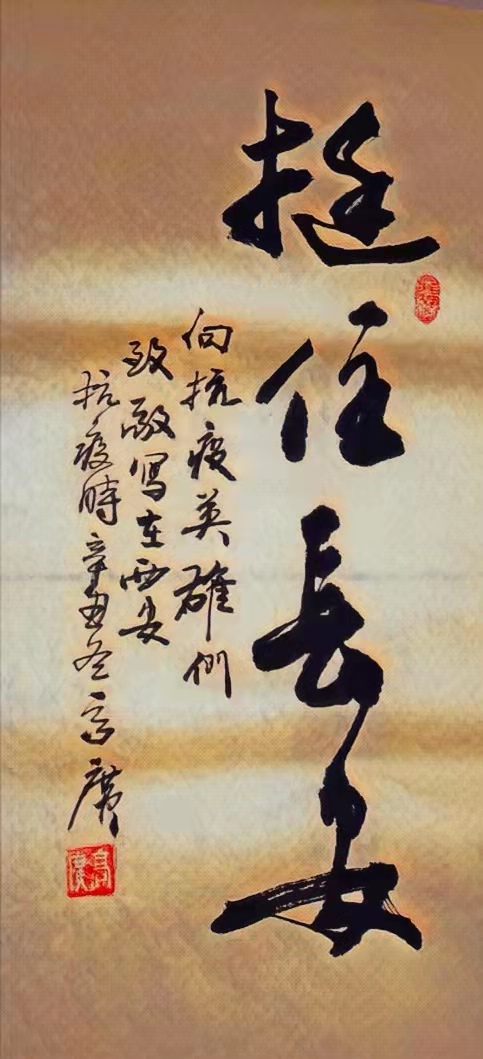 挺住長安
向抗疫英雄们
致敬写在西安
抗疫時辛丑冬高廣
高廣